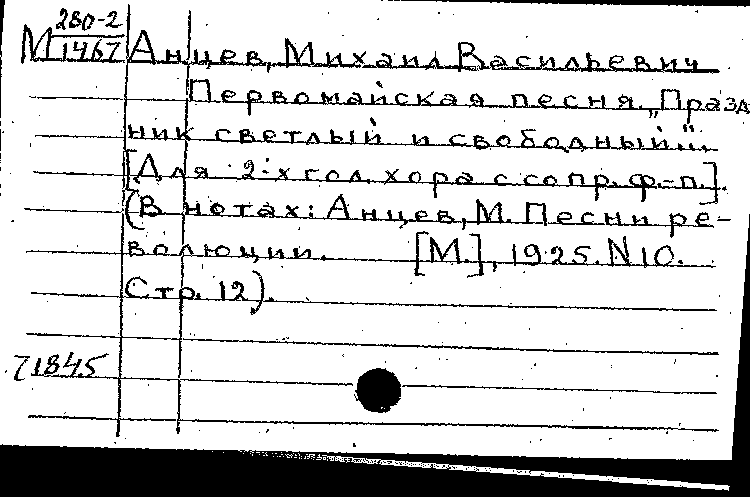 280-2
М 1467 Анцев, Михаил Васильевич
Первомайская песня. „Празд
ник светлый и свободный"...
[Для 2-х гол. хора с сопр. ф.-п.].
(В нотах: Анцев, М. Песни ре-
волюции. [М.], 1925. N 10.
Стр. 12).
71845